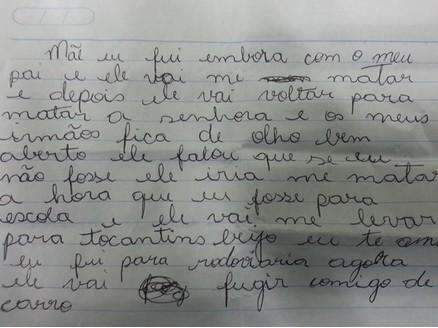 Mãe eu fui embora com o meu
pai e ele vai me matar
e depois ele vai voltar para
matar a senhora e os meus
irmãos fica de olho bem
aberto ele falou que se eu
não fosse ele iria me matar
a hora que eu fosse para
escola e ele vai me levar
para tocantins beijo eu te amo
eu fui para rodoviaria agora
ele vai fugir comigo de
carro